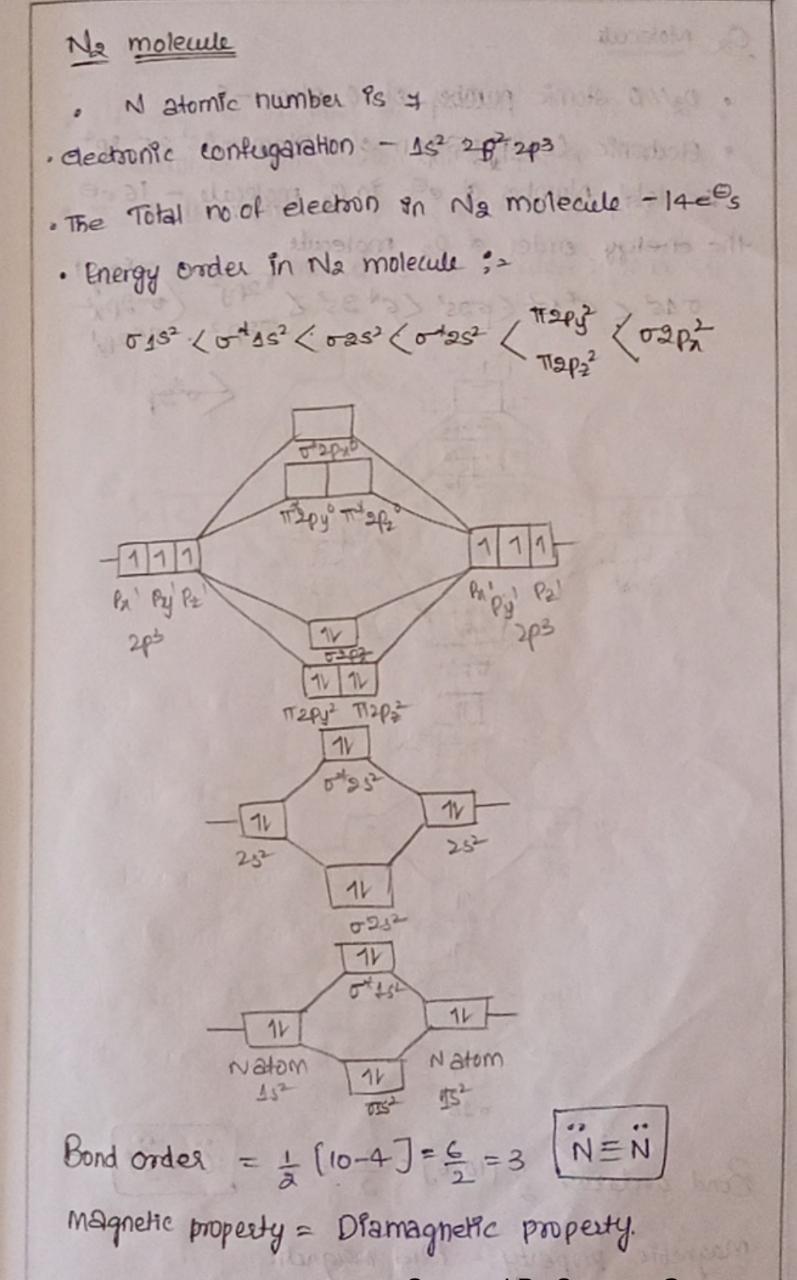 N2 molecule
• N atomic number is 7
• electronic confugaration - 1s² 2s² 2p3
• The Total no of electron in N2 molecule - 14e⊖s
• Energy order in N2 molecule :-
σ1s² < σ*1s² < σ2s² < σ*2s² < π2py² π2pz² < σ2px²
σ*2px⁰
π*2py⁰ π*2pz⁰
1 1 1 1 1 1
Px¹ Py¹ Pz¹ Px¹ Py¹ Pz¹
2p3 2p3
1l
1l 1l
π2py² π2pz²
1l
σ*2s²
1l 1l
2s² 2s²
1l
σ2s²
1l
σ*1s²
1l 1l
N atom N atom
1s² 1s²
1l
σ1s²
Bond order = 1/2 [10-4] = 6/2 = 3 N̈≡N̈
Magnetic property = Diamagnetic property.